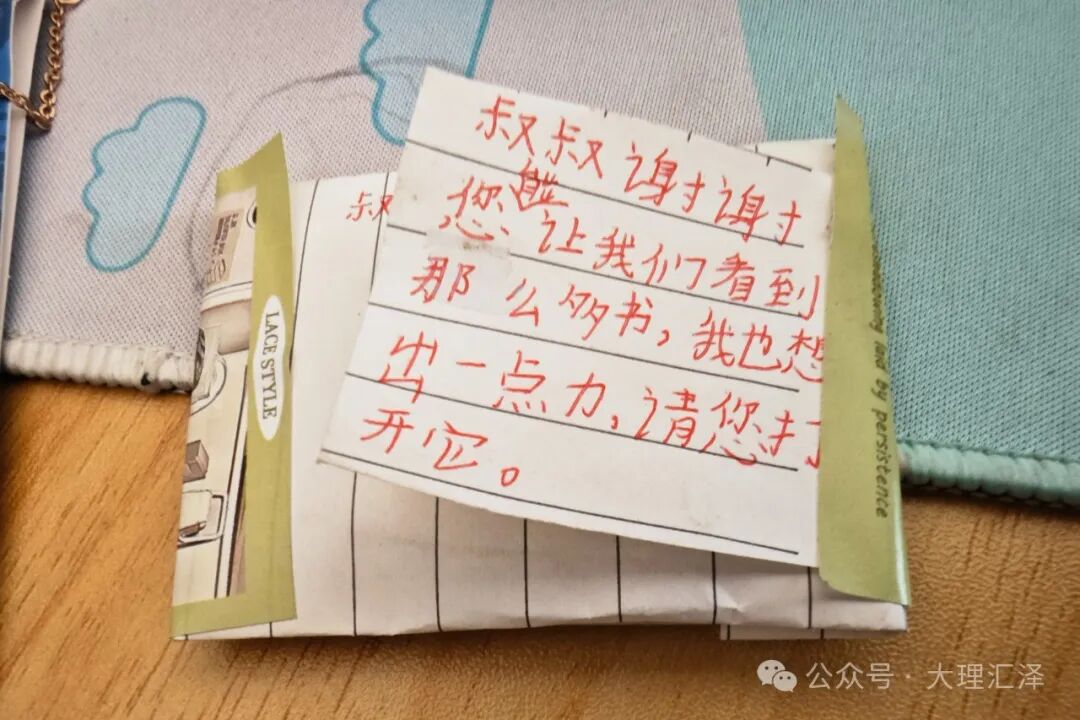 叔叔谢谢
您能让我们看到
那么多书，我也想
出一点力，请您打
开它。
叔
LACE STYLE
by persistence
公众号 · 大理汇泽